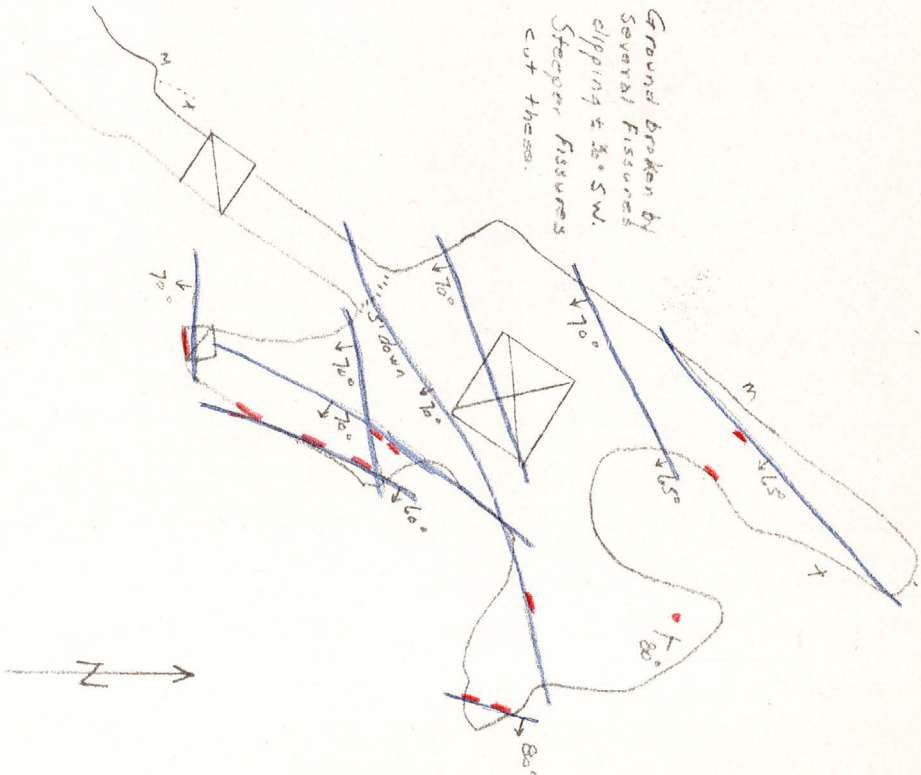 Ground broken by
several fissures
dipping ± 30° SW.
Steeper fissures
cut these.
M
X
70°
5' down
70°
70°
70°
70°
70°
60°
M
65°
65°
X
80°
80°
N